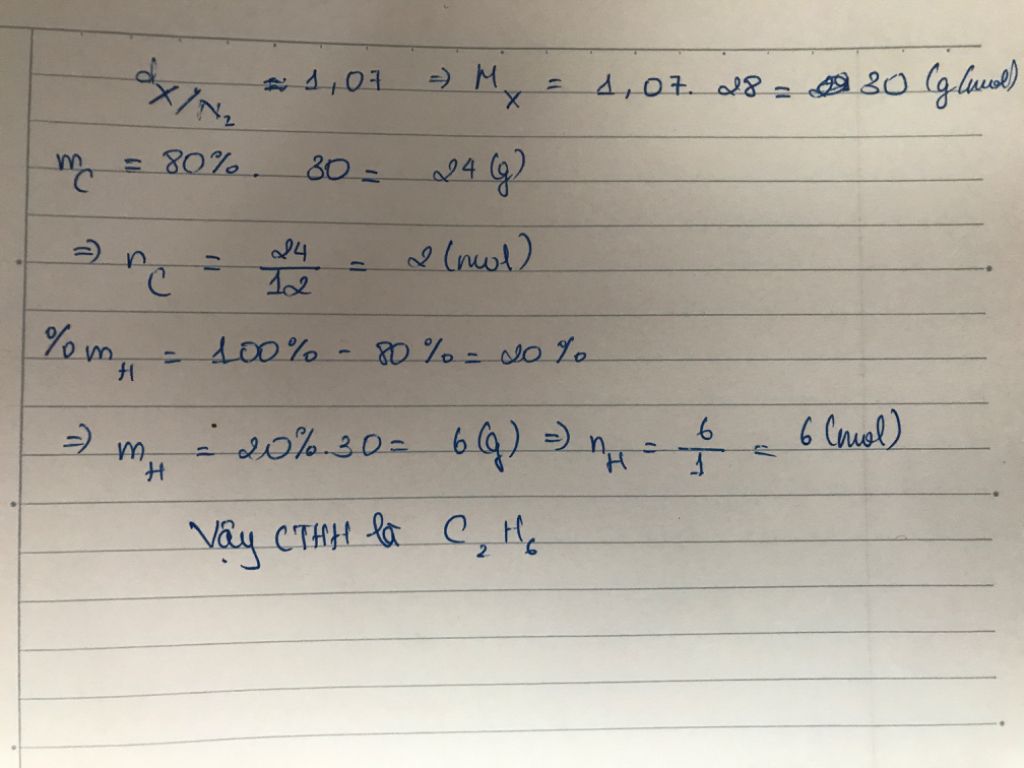 d_X/N₂ ≈ 1,07 ⇒ M_X = 1,07. 28 = 30 (g/mol)
m_C = 80%. 30 = 24 (g)
⇒ n_C = 24/12 = 2 (mol)
%m_H = 100% - 80% = 20%
⇒ m_H = 20%.30 = 6(g) ⇒ n_H = 6/1 = 6 (mol)
Vậy CTHH là C₂H₆